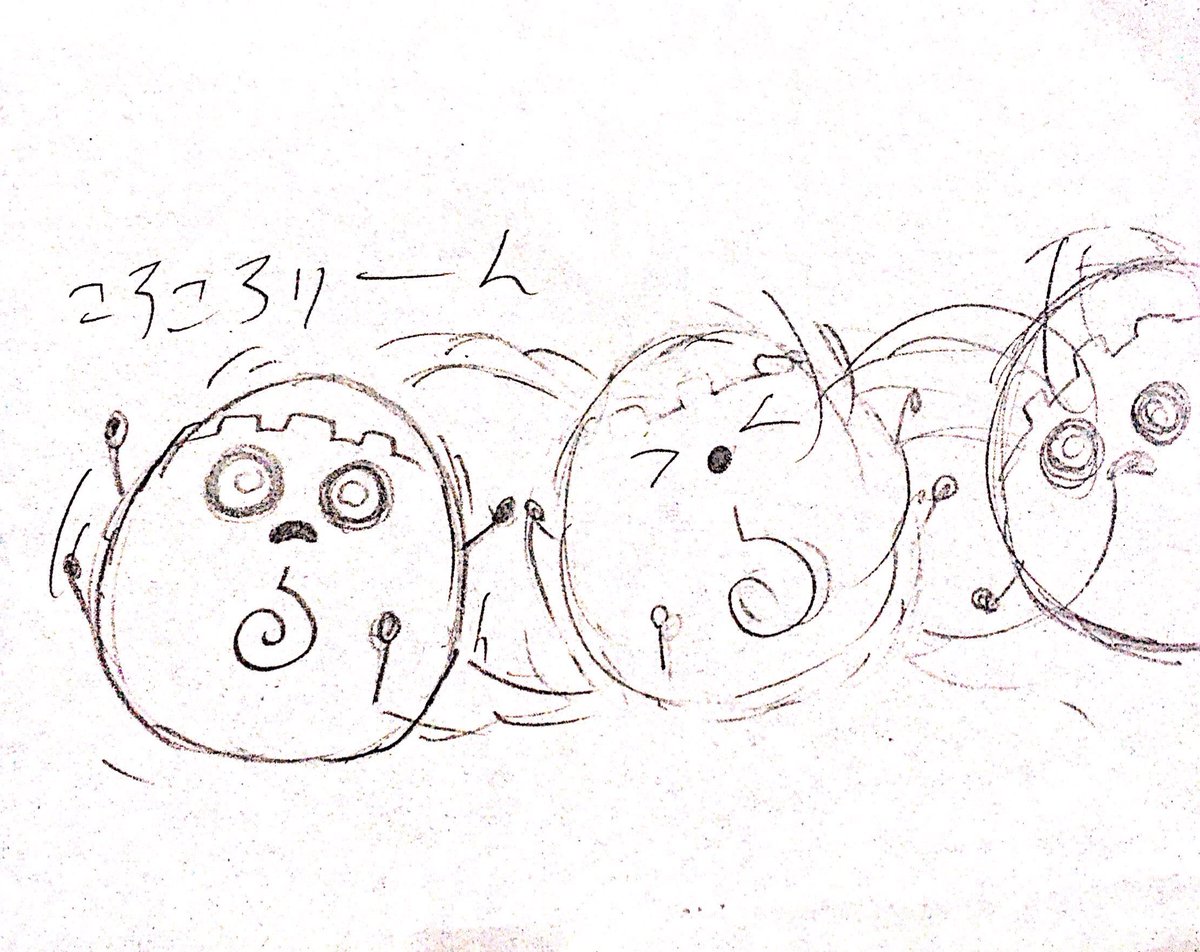 ころころりーん